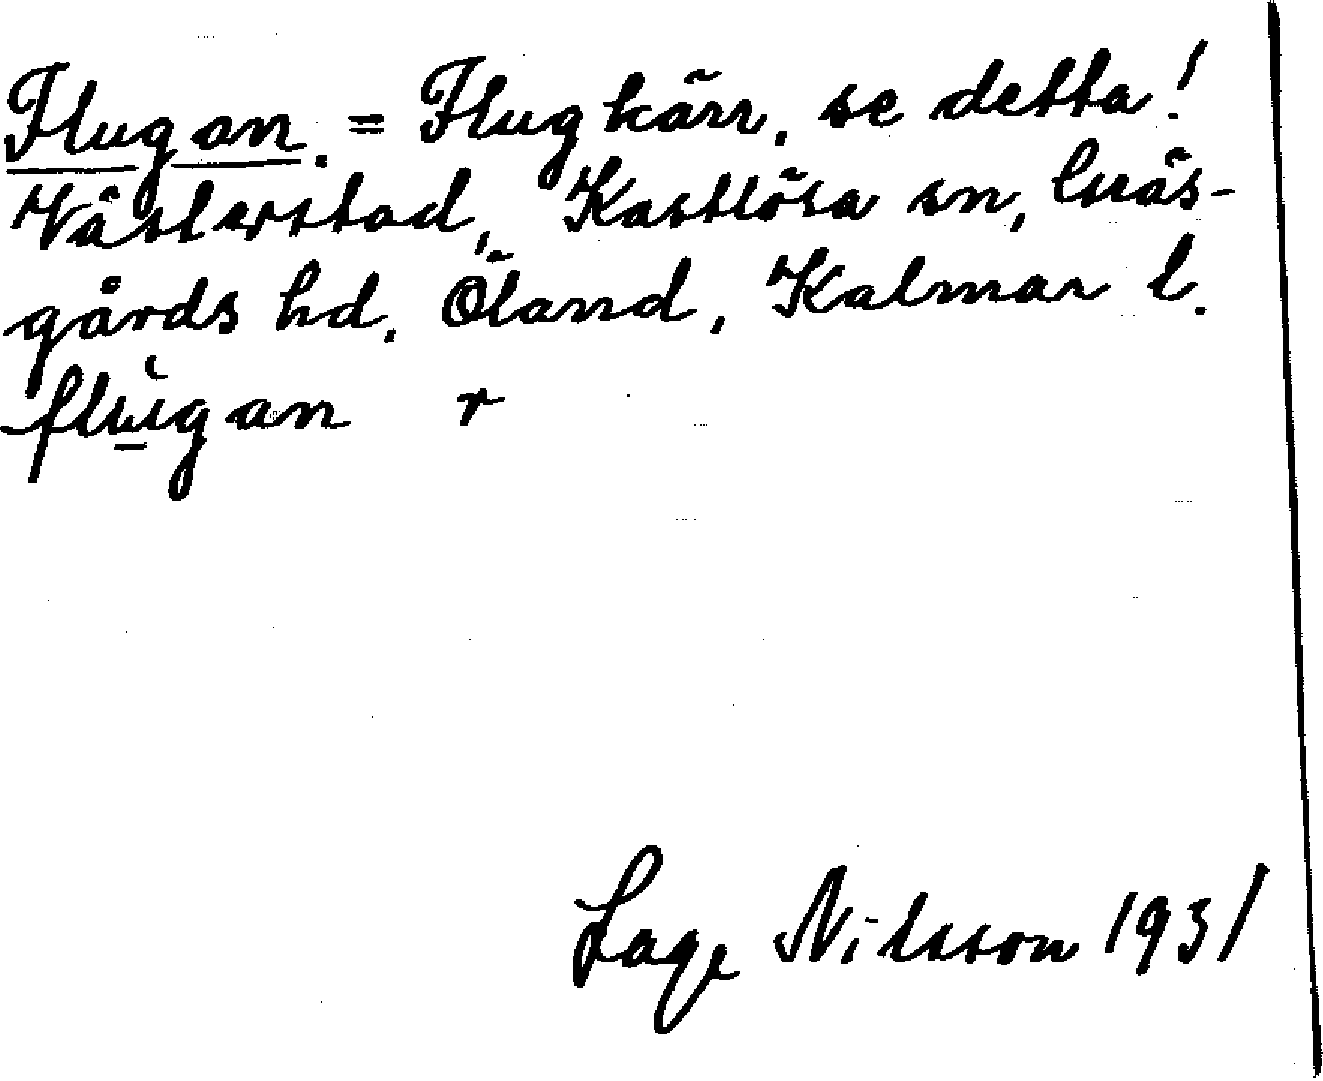 Flugan. = Flugkärr, se detta!
Västerstad, Kastlösa sn, Gräs-
gårds hd. Öland, Kalmar l.
flugan r
Lage Nilsson 1931